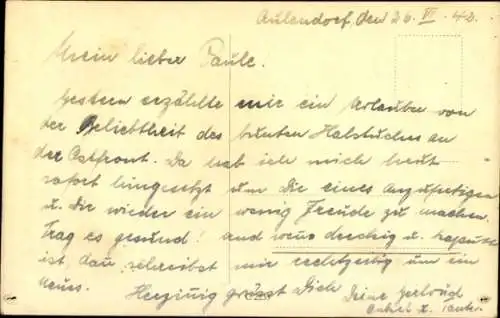 Aulendorf, den 26. VI. 42.
Mein lieber Paule.
Gestern erzählte mir ein Urlauber von
der Beliebtheit des bunten Halstuches an
der Ostfront. Da hab ich mich heut
sofort hingesetzt um Dir eines anzufertigen
u. dir wieder ein wenig Freude zu machen.
Trag es gesund! und wenn dreckig u. kaputt
ist dan schreibst mir rechtzeitig um ein
Neues. Herzinnig grüsst Dich Deine Gertrud
Onkel u. Tante.